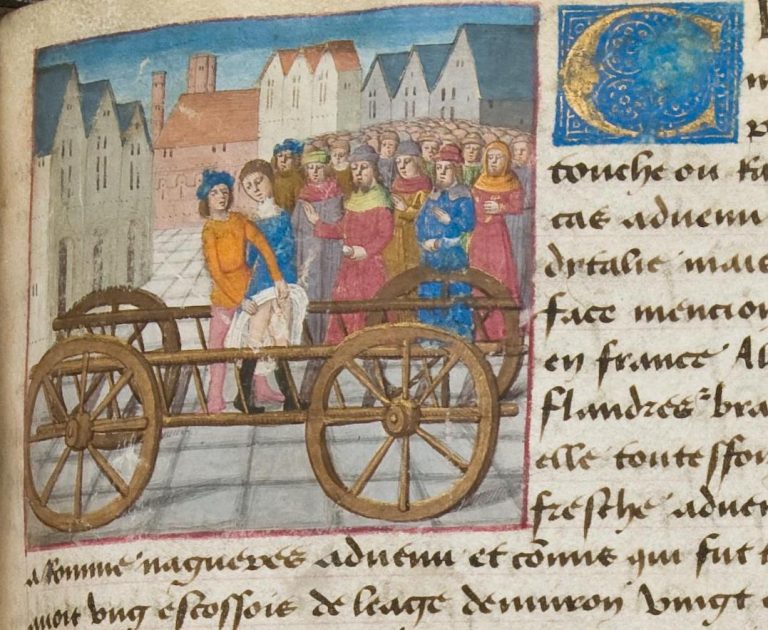 C
touche ou Ra
cas aduenu
dytalie mais
face mencion
en france Al
flandres bra
elle toutesfoi
fresche aduen
a Romme nagueres aduenu et cōnus qui fut t
auoit vng escossois de leage denuiron vingt